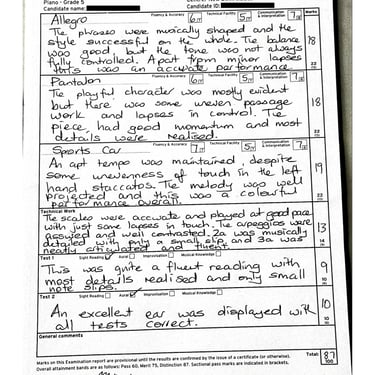 Piano - Grade 5
Candidate name:
Candidate ID
Allegro Fluency & Accuracy 6 Technical Facility 5 Communication & Interpretation 7 Marks
The phrases were musically shaped and the
style successful on the whole. The balance 18
was good but the tone was not always
fully controlled. Apart from minor lapses
this was an accurate performance 22
Pantalon Fluency & Accuracy 6 Technical Facility 5 Communication & Interpretation 7
The playful character was mostly evident
but there was some uneven passage
work and lapses in control. The 18
piece had good momentum and most
details were realised. 22
Sports Car Fluency & Accuracy 7 Technical Facility 5 Communication & Interpretation 7
An apt tempo was maintained, despite
some unevenness of touch in the left 19
hand staccatos. The melody was well
projected and this was a colourful
performance overall. 22
Technical Work
The scales were accurate and played at good pace
with just some lapses in touch. The arpeggios were
assured and well contrasted. 2a was musically 13
detailed with only a small slip, and 3a was 14
neatly articulated and fluent.
Test 1 Sight Reading Aural Improvisation Musical Knowledge
This was quite a fluent reading with 9
most details realised and only small
note slips. 10
Test 2 Sight Reading Aural Improvisation Musical Knowledge
An excellent ear was displayed with 10
all tests correct. 10
General comments
Total: 87
100
Marks on this Examination report are provisional until the results are confirmed by the issue of a certificate (or otherwise).
Overall attainment bands are as follows: Pass 60, Merit 75, Distinction 87. Sectional pass marks are indicated in brackets.